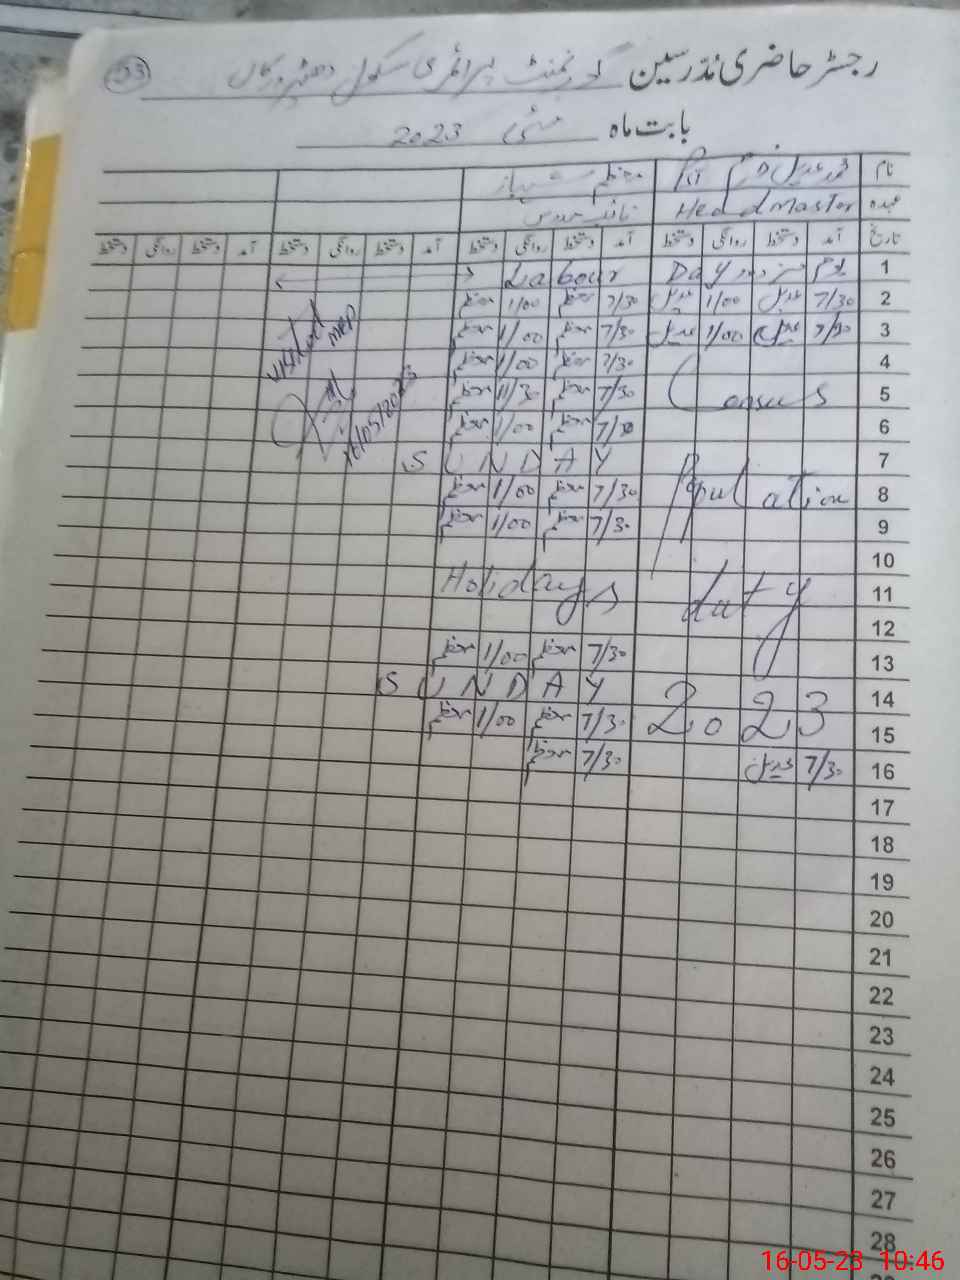 53
رجسٹر حاضری مدرسین گورنمنٹ پرائمری سکول
بابت ماہ مئی 2023
نام
عہدہ Head Master نائب مدرس
تاریخ آمد دستخط روانگی دستخط آمد دستخط روانگی دستخط آمد دستخط روانگی دستخط آمد دستخط روانگی دستخط
1 یوم مزدور Labour Day
2 7/30 عدیل 1/00 عدیل 7/30 معظم 1/00 معظم
3 7/30 عدیل 1/00 عدیل 7/30 معظم 1/00 معظم
4 7/30 معظم 1/00 معظم
5 Census 7/30 معظم 11/30 معظم
6 7/30 معظم 1/00 معظم
7 SUNDAY
8 Population 7/30 معظم 1/00 معظم
9 7/30 معظم 1/00 معظم
10
11 duty Holidays
12
13 7/30 معظم 1/00 معظم
14 SUNDAY
15 2023 7/30 معظم 1/00 معظم
16 7/30 عدیل 7/30 معظم
17
18
19
20
21
22
23
24
25
26
27
28
Visited
16/05/2023
16-05-23 10:46